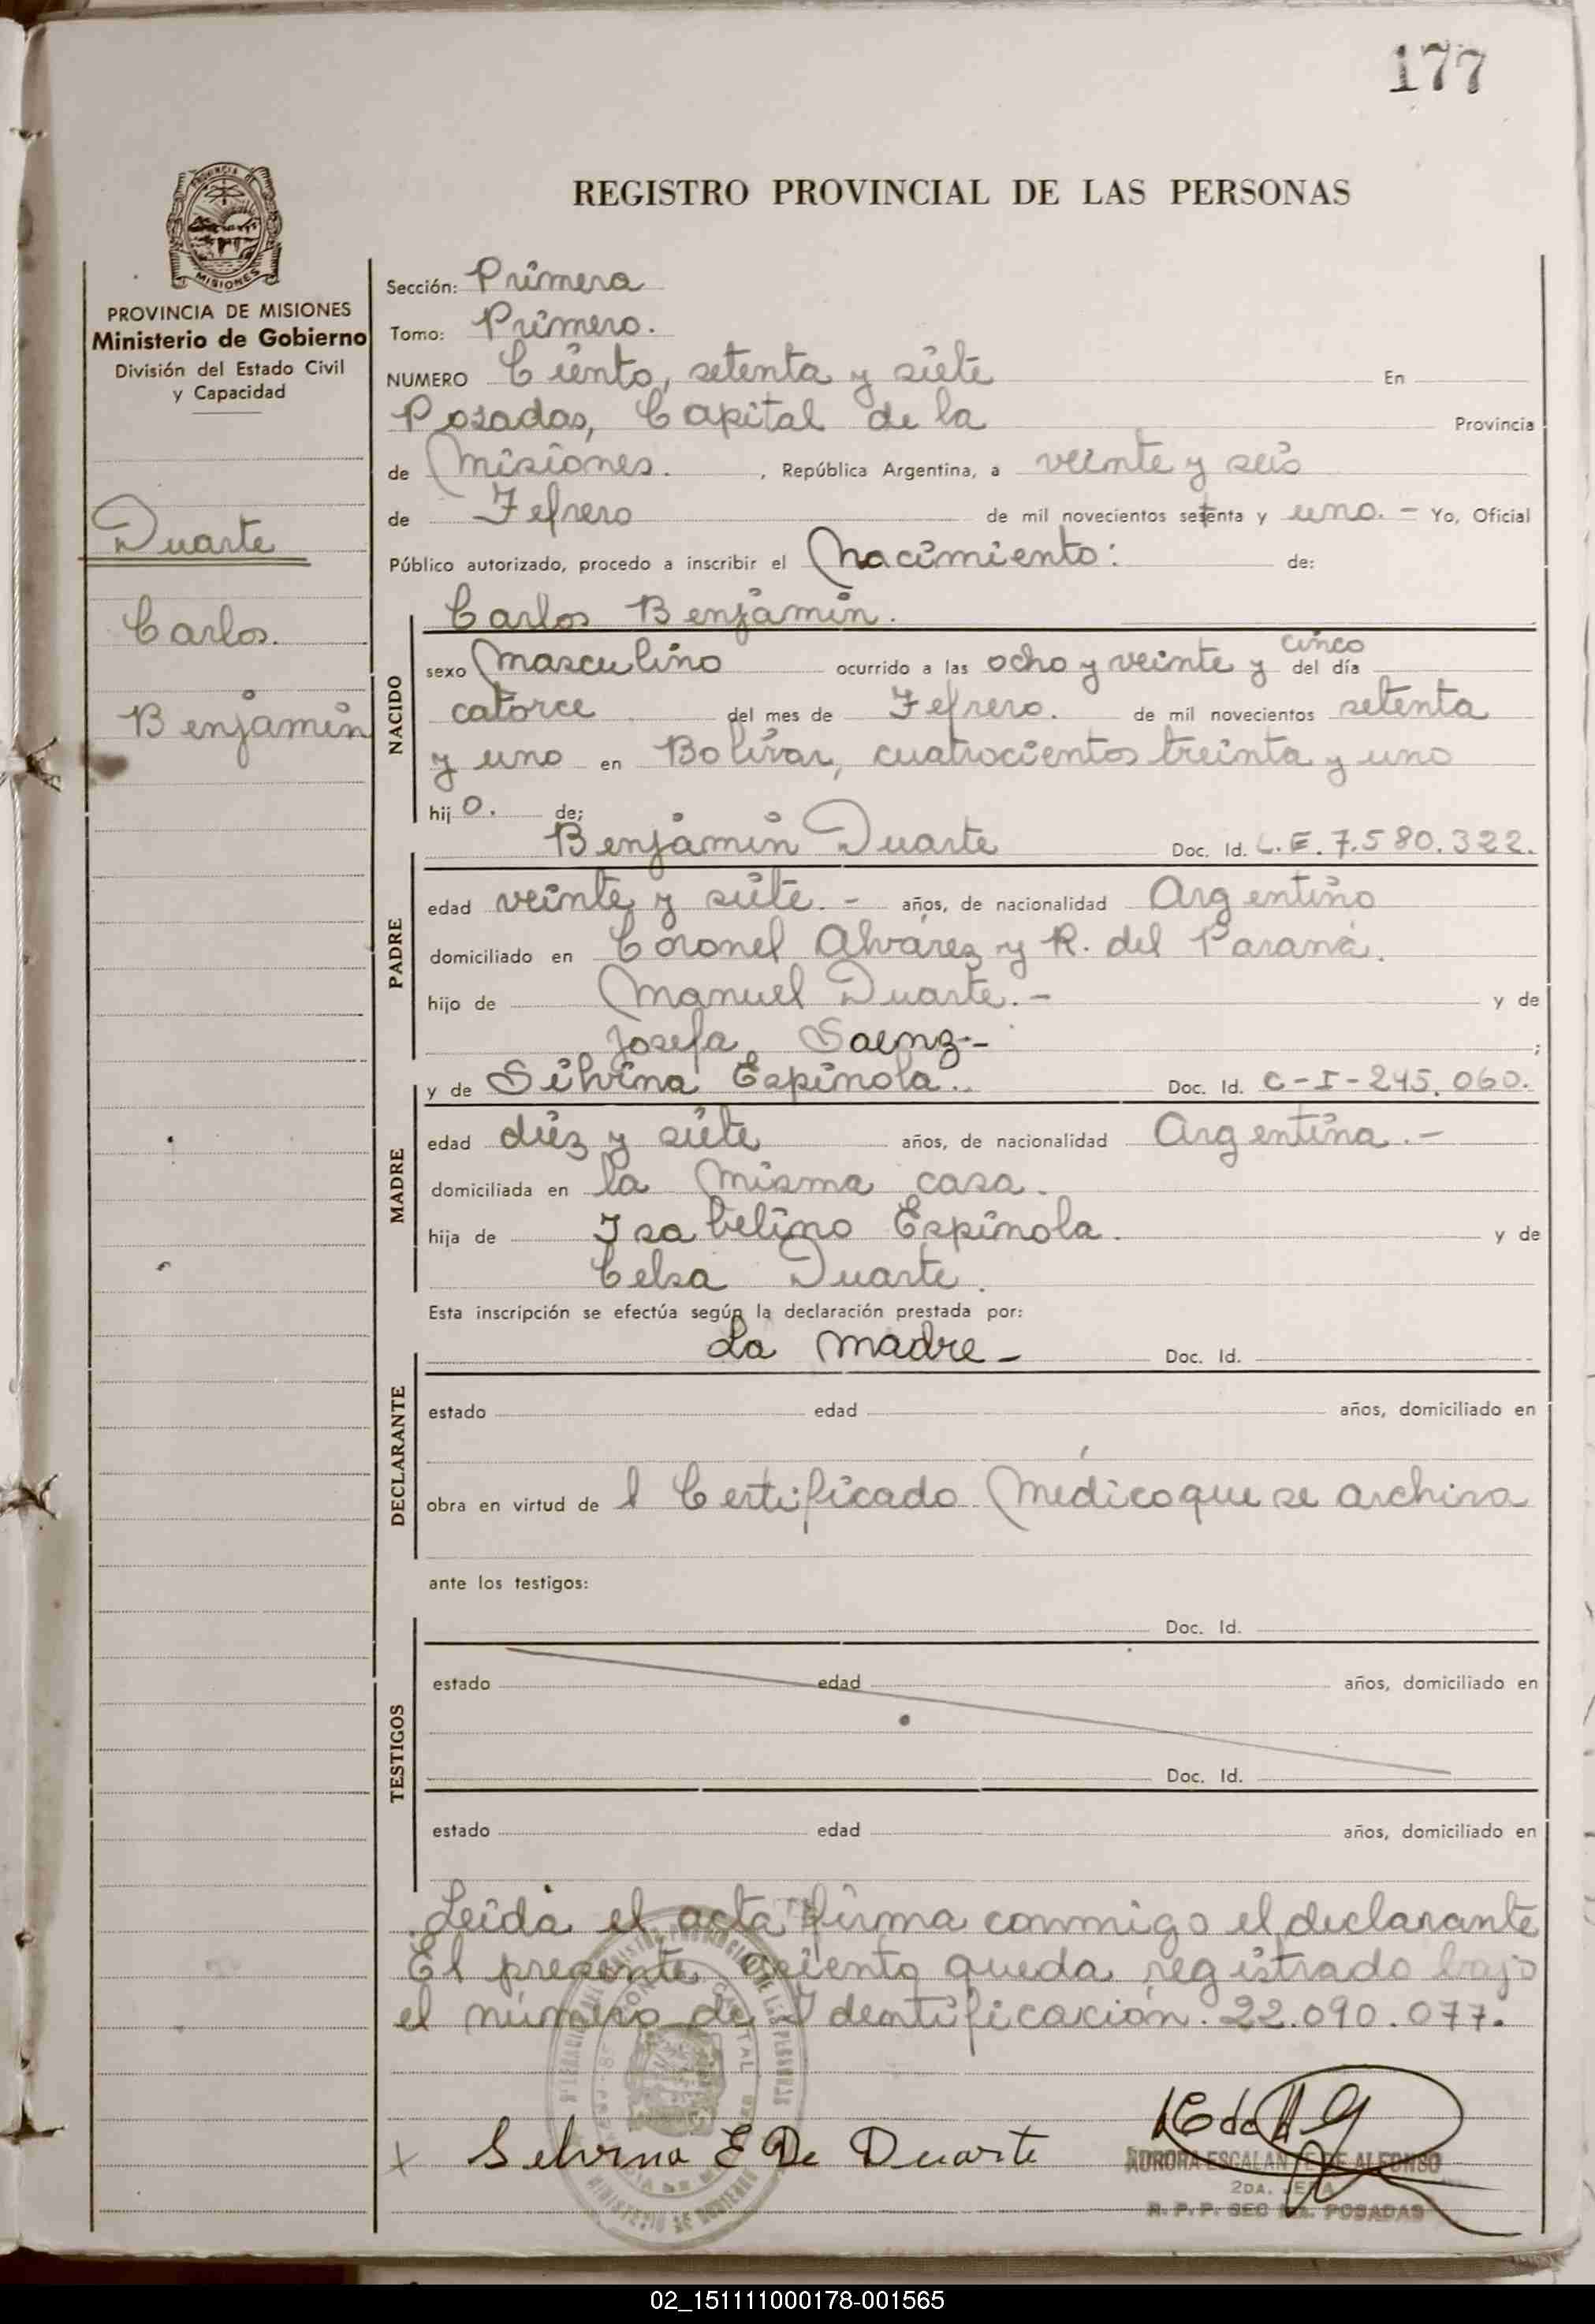 177
REGISTRO PROVINCIAL DE LAS PERSONAS
PROVINCIA DE MISIONES
Ministerio de Gobierno
División del Estado Civil
y Capacidad
Duarte
Carlos.
Benjamin
Sección: Primera
Tomo: Primero.
NUMERO Ciento, setenta y siete En
Posadas, Capital de la Provincia
de Misiones. , República Argentina, a veinte y seis
de Febrero de mil novecientos setenta y uno. - Yo, Oficial
Público autorizado, procedo a inscribir el Nacimiento: de:
NACIDO
Carlos Benjamin.
cinco
sexo Masculino ocurrido a las ocho y veinte y del día
catorce del mes de Febrero. de mil novecientos setenta
y uno en Bolivar, cuatrocientos treinta y uno
hijo. de;
PADRE
Benjamin Duarte Doc. Id. L.E. 7.580.322.
edad veinte y siete. - años, de nacionalidad Argentino
domiciliado en Coronel Alvárez y R. del Paraná.
hijo de Manuel Duarte. - y de
Josefa Saenz.- ;
MADRE
y de Silvina Espinola.. Doc. Id. C-I-245.060.
edad diez y siete años, de nacionalidad Argentina.-
domiciliada en la misma casa.
hija de Isabelino Espinola. y de
Celsa Duarte.
Esta inscripción se efectúa según la declaración prestada por:
DECLARANTE
La madre - Doc. Id.
estado edad años, domiciliado en
obra en virtud de l Certificado Médico que se archiva
ante los testigos:
TESTIGOS
Doc. Id.
estado edad años, domiciliado en
Doc. Id.
estado edad años, domiciliado en
Leida el acta firma conmigo el declarante
El presente asiento queda registrado bajo
el número de Identificación. 22.090.077.
x Selvina E De Duarte
AURORA ESCALANTE DE ALFONSO
2DA. JEFA
R. P. P. SEC 1ra. POSADAS
02_151111000178-001565